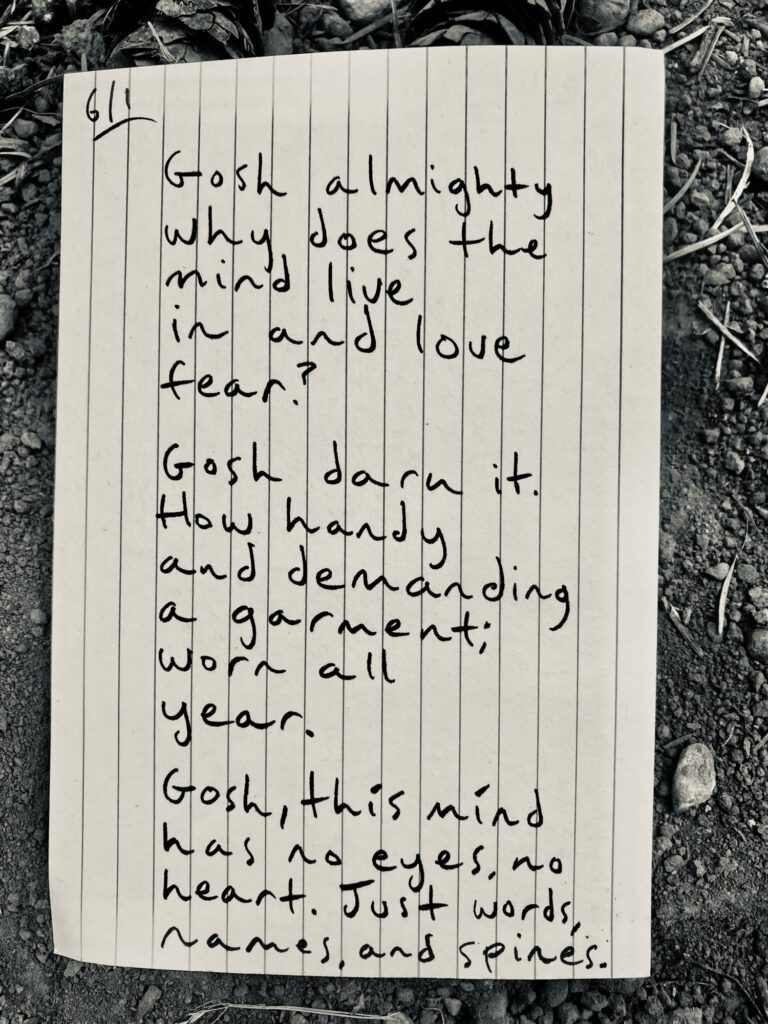 6/1
Gosh almighty
why does the
mind live
in and love
fear?
Gosh darn it.
How handy
and demanding
a garment;
worn all
year.
Gosh, this mind
has no eyes, no
heart. Just words,
names, and spines.